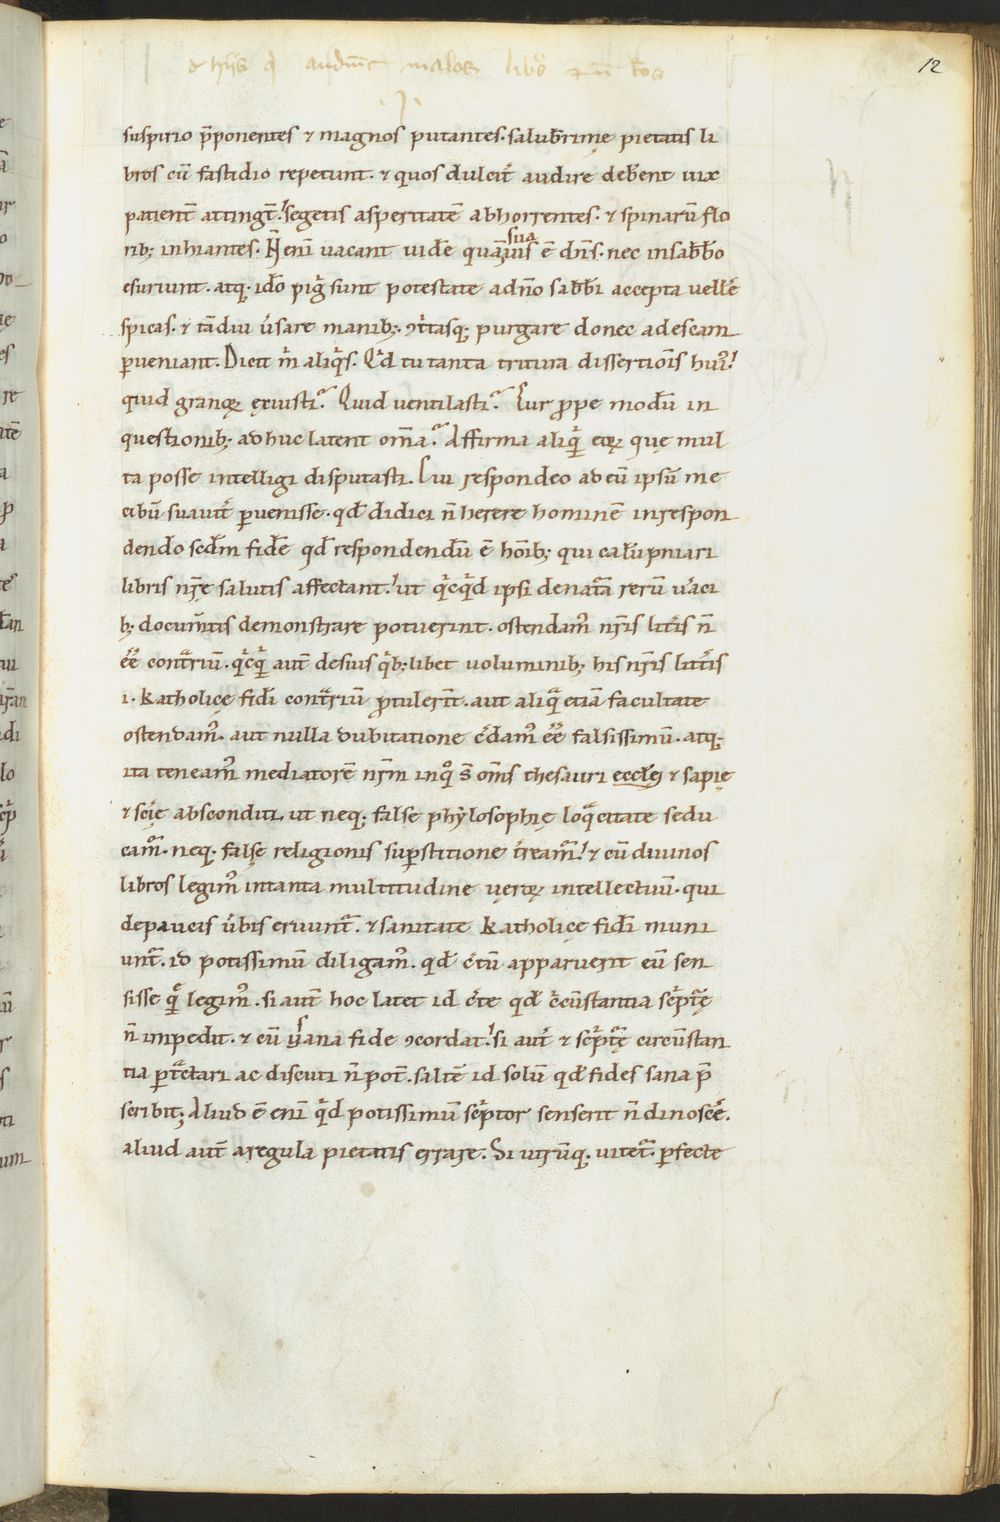 de hiis q̄ audiūt malos libͦs ⁊ n̄ bōs
12
suspirio p̄ponentes & magnos putantes. saluƀrimę pietatis li
bros cū fastidio repetunt. & quos dulcit̄ audire deƀent uix
patient̄ attingt̄. segetis asperitatē abhorrentes. & spinarū flo
rib; inhiantes. N̄ enī uacant uidē quā suauis ē dn̄s. nec insaƀƀo
esuriunt. atq. idō pigͥ sunt potestate adn̄o saƀƀi accepta uellē
spicas. & tādiu ūsare manib;. ꝯtͥtasq; purgare donec ad escam
ꝑueniant. Dicit m̄ aliqͥs. Qd̄ tu tanta tritura dissertiōīs huiͥ
quid granoꝝ exuisti? Quid uentilasti? Cur ꝓpe modū in
questionib; adhuc latent om̄a? Affirma aliqͥ eoꝝ quę mul
ta posse intelligi disputasti. Cui respondeo ad eū ipsū me
cibū suauit̄ ꝑuenisse. qd̄ didici n̄ herere hominē in respon
dendo scd̄m fidē qd̄ respondendū ē hoīb; qui calūpniari
libris nr̄e salutis affectant. ut qͥcqͥd ipsi de natͣa rerū uͣaci
b; documtīs demonstrare potuerint. ostendamͦ nr̄is litīs n̄
eē̄ contͣriū. qͥcqͥ aut̄ desuis qͥb; libet uoluminib; his nr̄is littīs
i. katholicę fidi contͣriū ꝓtulerīt. aut aliqͣ etiā facultate
ostendamͦ. aut nulla dubitatione c̄damͦ eē̄ falsissimū. atq;
ita teneamͦ mediatorē nr̄m inqͦ s̄ om̄s thesauri eccłę & sapię
& scię absconditi, ut neq; false phẏlosophię loqͣcitate sedu
camͦ. neq; falsę religionis suꝑstitione t̄reamͦ. & cū diuinos
libros legimͦ in tanta multitudine ueroꝝ intellectuū. qui
de paucis ūbis eruunt̄. & sanitate katholicę fidi muni
unt̄. id potissimū diligamͦ. qd̄ c̄tū apparuerit eum sen
sisse qͣ legimͦ. si aut̄ hoc latet id c̄te qd̄ c̄cūstantia scͥptͣę
n̄ inpedit. & cū sana fide ꝯcordat. si aut̄ & scͥptͣę circūstan
tia ꝑtͣctari ac discuti n̄ pot̄. saltē id solū qd̄ fides sana p̄
scribit; Aliud ē enī qͥd potissimū scͥptor senserit n̄ dinoscē.
aliud aut̄ a regula pietatis errare. Si utrūq. uitet̄. ꝑfecte